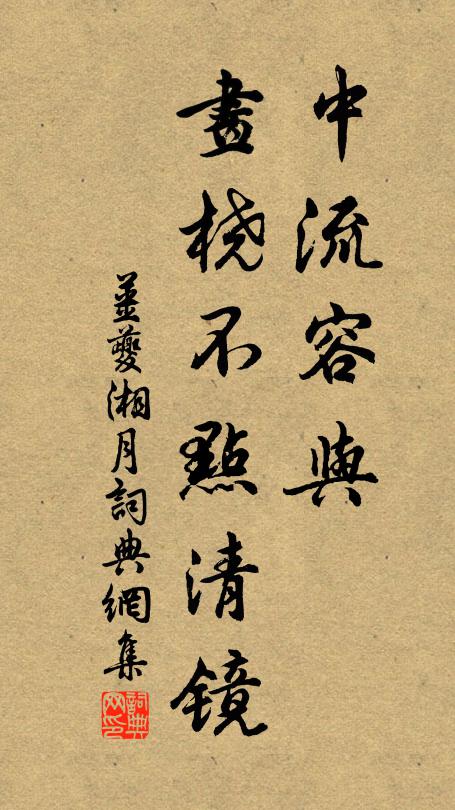 中流容與
畫橈不點清鏡
姜夔湘月詞典網集
詞典网印